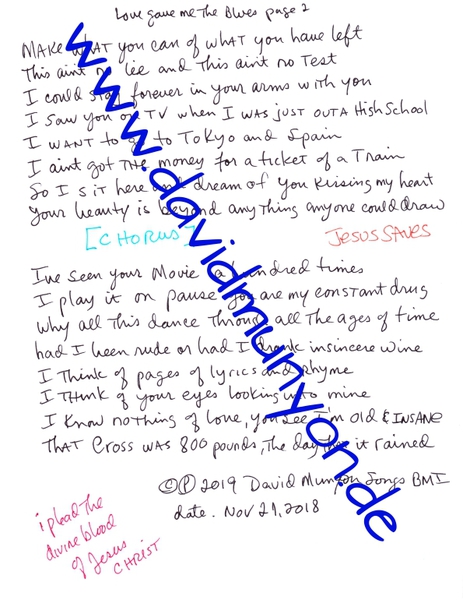 Love gave me The Blues page 2
Make what you can of what you have left
This aint no lee and This aint no Test
I could stay forever in your arms with you
I saw you on TV when I was just outa High School
I want to go to Tokyo and Spain
I aint got the money for a ticket of a Train
So I sit here and dream of you kissing my heart
your beauty is beyond anything anyone could draw
[CHORUS]
JESUS SAVES
I've seen your Movie a hundred times
I play it on pause you are my constant drug
why all This dance Through all The ages of time
had I been rude or had I drank insincere wine
I Think of pages of lyrics and rhyme
I Think of your eyes looking into mine
I know nothing of love, you see I'm old & INSANE
THAT Cross was 800 pounds, The day it rained
©℗ 2019 David Munyon Songs BMI
date. Nov 21, 2018
i plead The
divine blood
of Jesus
CHRIST
www.davidmunyon.de